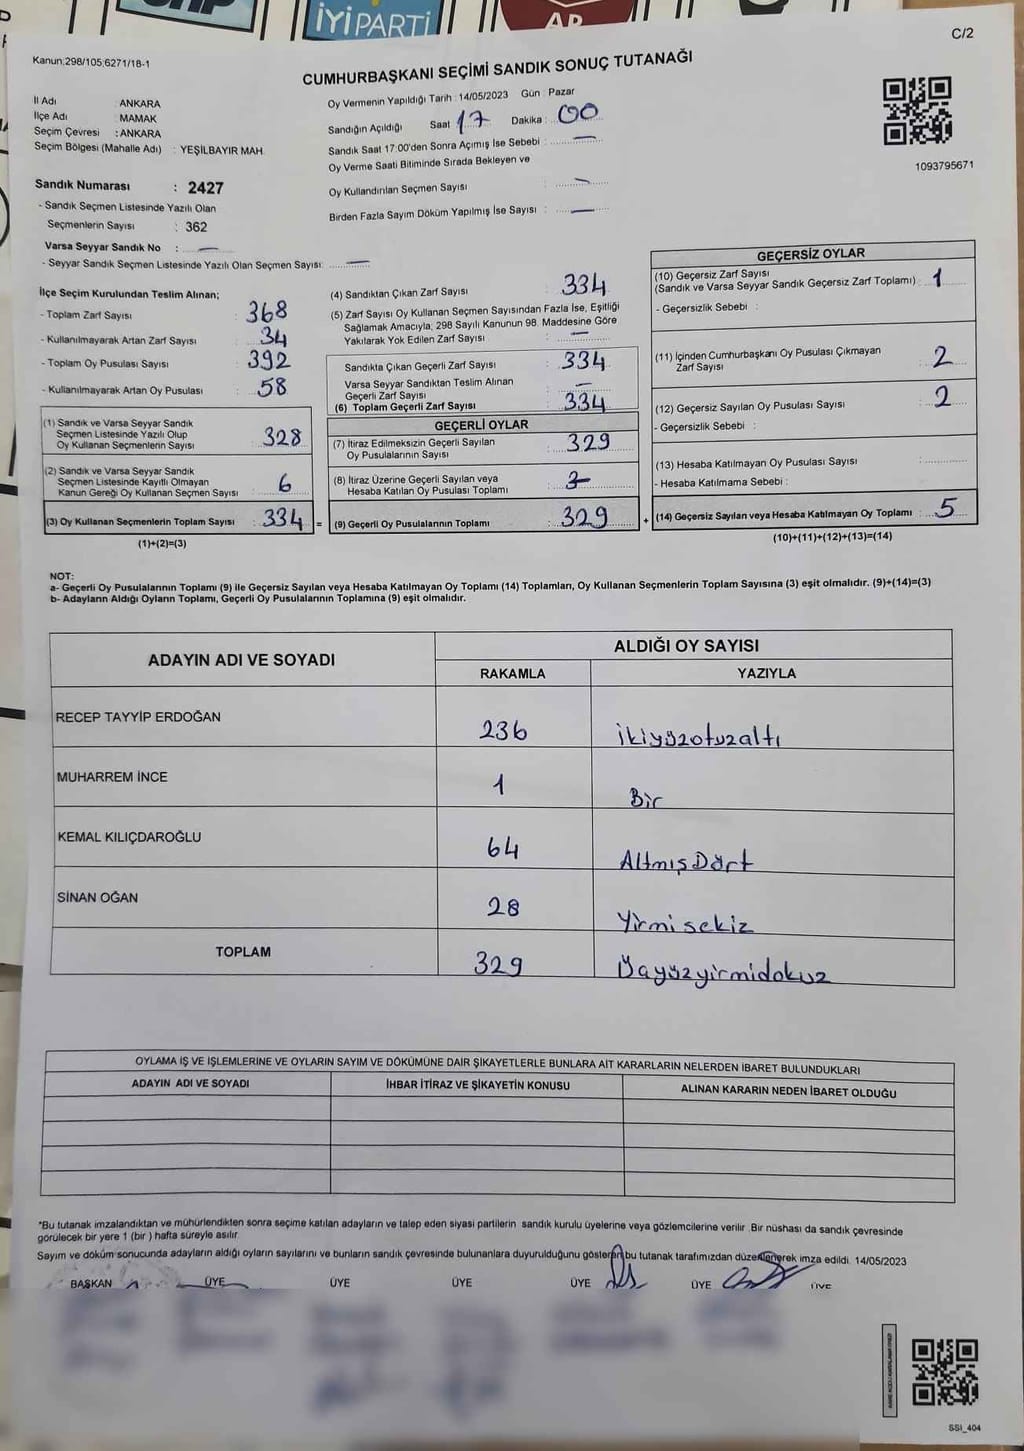 İYİ PARTİ
C/2
Kanun;298/105;6271/18-1
CUMHURBAŞKANI SEÇİMİ SANDIK SONUÇ TUTANAĞI
İl Adı : ANKARA
İlçe Adı : MAMAK
Seçim Çevresi : ANKARA
Seçim Bölgesi (Mahalle Adı) : YEŞİLBAYIR MAH.
Oy Vermenin Yapıldığı Tarih : 14/05/2023 Gün : Pazar
Sandığın Açıldığı Saat : 17 Dakika : 00
Sandık Saat 17:00'den Sonra Açımış İse Sebebi : —
Oy Verme Saati Bitiminde Sırada Bekleyen ve
Oy Kullandırılan Seçmen Sayısı : —
Birden Fazla Sayım Döküm Yapılmış İse Sayısı : —
1093795671
Sandık Numarası : 2427
- Sandık Seçmen Listesinde Yazılı Olan
Seçmenlerin Sayısı : 362
Varsa Seyyar Sandık No : —
- Seyyar Sandık Seçmen Listesinde Yazılı Olan Seçmen Sayısı: —
İlçe Seçim Kurulundan Teslim Alınan;
- Toplam Zarf Sayısı : 368
- Kullanılmayarak Artan Zarf Sayısı : 34
- Toplam Oy Pusulası Sayısı : 392
- Kullanılmayarak Artan Oy Pusulası : 58
(1) Sandık ve Varsa Seyyar Sandık
Seçmen Listesinde Yazılı Olup
Oy Kullanan Seçmenlerin Sayısı : 328
(2) Sandık ve Varsa Seyyar Sandık
Seçmen Listesinde Kayıtlı Olmayan
Kanun Gereği Oy Kullanan Seçmen Sayısı : 6
(3) Oy Kullanan Seçmenlerin Toplam Sayısı : 334 =
(1)+(2)=(3)
(4) Sandıktan Çıkan Zarf Sayısı : 334
(5) Zarf Sayısı Oy Kullanan Seçmen Sayısından Fazla İse, Eşitliği
Sağlamak Amacıyla; 298 Sayılı Kanunun 98. Maddesine Göre
Yakılarak Yok Edilen Zarf Sayısı : —
Sandıkta Çıkan Geçerli Zarf Sayısı : 334
Varsa Seyyar Sandıktan Teslim Alınan
Geçerli Zarf Sayısı : —
(6) Toplam Geçerli Zarf Sayısı : 334
GEÇERLİ OYLAR
(7) İtiraz Edilmeksizin Geçerli Sayılan
Oy Pusulalarının Sayısı : 329
(8) İtiraz Üzerine Geçerli Sayılan veya
Hesaba Katılan Oy Pusulası Toplamı :
(9) Geçerli Oy Pusulalarının Toplamı : 329 +
GEÇERSİZ OYLAR
(10) Geçersiz Zarf Sayısı
(Sandık ve Varsa Seyyar Sandık Geçersiz Zarf Toplamı) : 1
- Geçersizlik Sebebi :
(11) İçinden Cumhurbaşkanı Oy Pusulası Çıkmayan
Zarf Sayısı : 2
(12) Geçersiz Sayılan Oy Pusulası Sayısı : 2
- Geçersizlik Sebebi :
(13) Hesaba Katılmayan Oy Pusulası Sayısı :
- Hesaba Katılmama Sebebi :
(14) Geçersiz Sayılan veya Hesaba Katılmayan Oy Toplamı : 5
(10)+(11)+(12)+(13)=(14)
NOT:
a- Geçerli Oy Pusulalarının Toplamı (9) ile Geçersiz Sayılan veya Hesaba Katılmayan Oy Toplamı (14) Toplamları, Oy Kullanan Seçmenlerin Toplam Sayısına (3) eşit olmalıdır. (9)+(14)=(3)
b- Adayların Aldığı Oyların Toplamı, Geçerli Oy Pusulalarının Toplamına (9) eşit olmalıdır.
ADAYIN ADI VE SOYADI
ALDIĞI OY SAYISI
RAKAMLA YAZIYLA
RECEP TAYYİP ERDOĞAN 236 ikiyüzotuzaltı
MUHARREM İNCE 1 Bir
KEMAL KILIÇDAROĞLU 64 Altmış Dört
SİNAN OĞAN 28 Yirmi sekiz
TOPLAM 329 Üçyüzyirmidokuz
OYLAMA İŞ VE İŞLEMLERİNE VE OYLARIN SAYIM VE DÖKÜMÜNE DAİR ŞİKAYETLERLE BUNLARA AİT KARARLARIN NELERDEN İBARET BULUNDUKLARI
ADAYIN ADI VE SOYADI İHBAR İTİRAZ VE ŞİKAYETİN KONUSU ALINAN KARARIN NEDEN İBARET OLDUĞU
*Bu tutanak imzalandıktan ve mühürlendikten sonra seçime katılan adayların ve talep eden siyasi partilerin sandık kurulu üyelerine veya gözlemcilerine verilir. Bir nüshası da sandık çevresinde
görülecek bir yere 1 (bir ) hafta süreyle asılır.
Sayım ve döküm sonucunda adayların aldığı oyların sayılarını ve bunların sandık çevresinde bulunanlara duyurulduğunu gösteren bu tutanak tarafımızdan düzenlenerek imza edildi. 14/05/2023
BAŞKAN ÜYE ÜYE ÜYE ÜYE ÜYE ÜYE
SSI_404